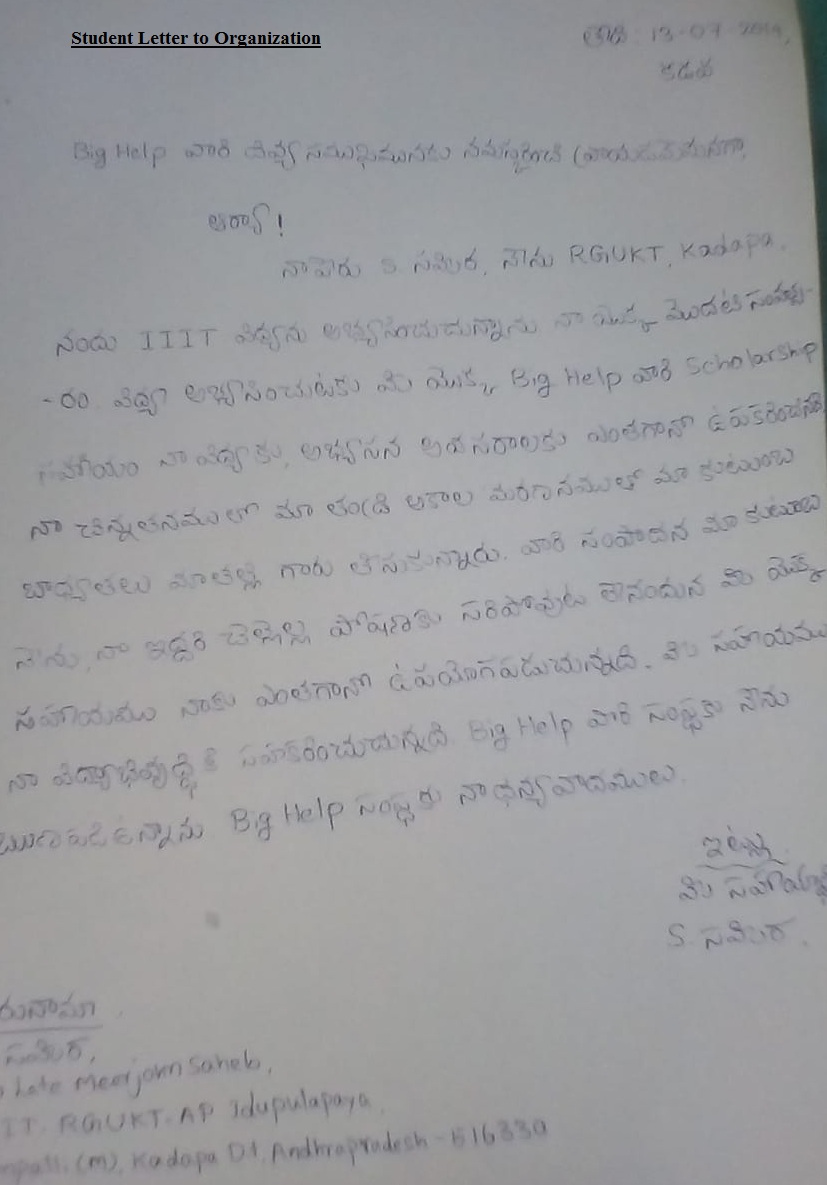 Student Letter to Organization
తేది: 13-07-2019,
కడప
Big Help వారి దివ్య సముఖమునకు నమస్కరించి వ్రాయునదేమనగా,
ఆర్యా!
నాపేరు S. సమీర, నేను RGUKT, Kadapa,
నందు IIIT విద్యను అభ్యసించుచున్నాను నా యొక్క మొదటి సంవత్స-
-రం విద్యా అభ్యసించుటకు మీ యొక్క Big Help వారి Scholarship
సహాయం నా విద్యకు, అభ్యసన అవసరాలకు ఎంతగానో ఉపకరించినది
నా చిన్నతనములో మా తండ్రి అకాల మరణములో మా కుటుంబ
బాధ్యతలు మాతల్లి గారు తీసుకున్నారు. వారి సంపాదన మా కుటుంబ
నేను, నా ఇద్దరి చెల్లెల్ల పోషణకు సరిపోవుట లేనందున మీ యొక్క
సహాయము నాకు ఎంతగానో ఉపయోగపడుచున్నది. మీ సహాయము
నా విద్యాభివృద్ధికి సహకరించుచున్నది. Big Help వారి సంస్థకు నేను
ఋణపడిఉన్నాను. Big Help సంస్థకు నా ధన్యవాదములు.
ఇట్లు
మీ
S. సమీర.
సమీర,
Late Meerjohn Saheb,
RGUKT-AP Idupulapaya,
(m), Kadapa Dt, Andhrapradesh - 516330